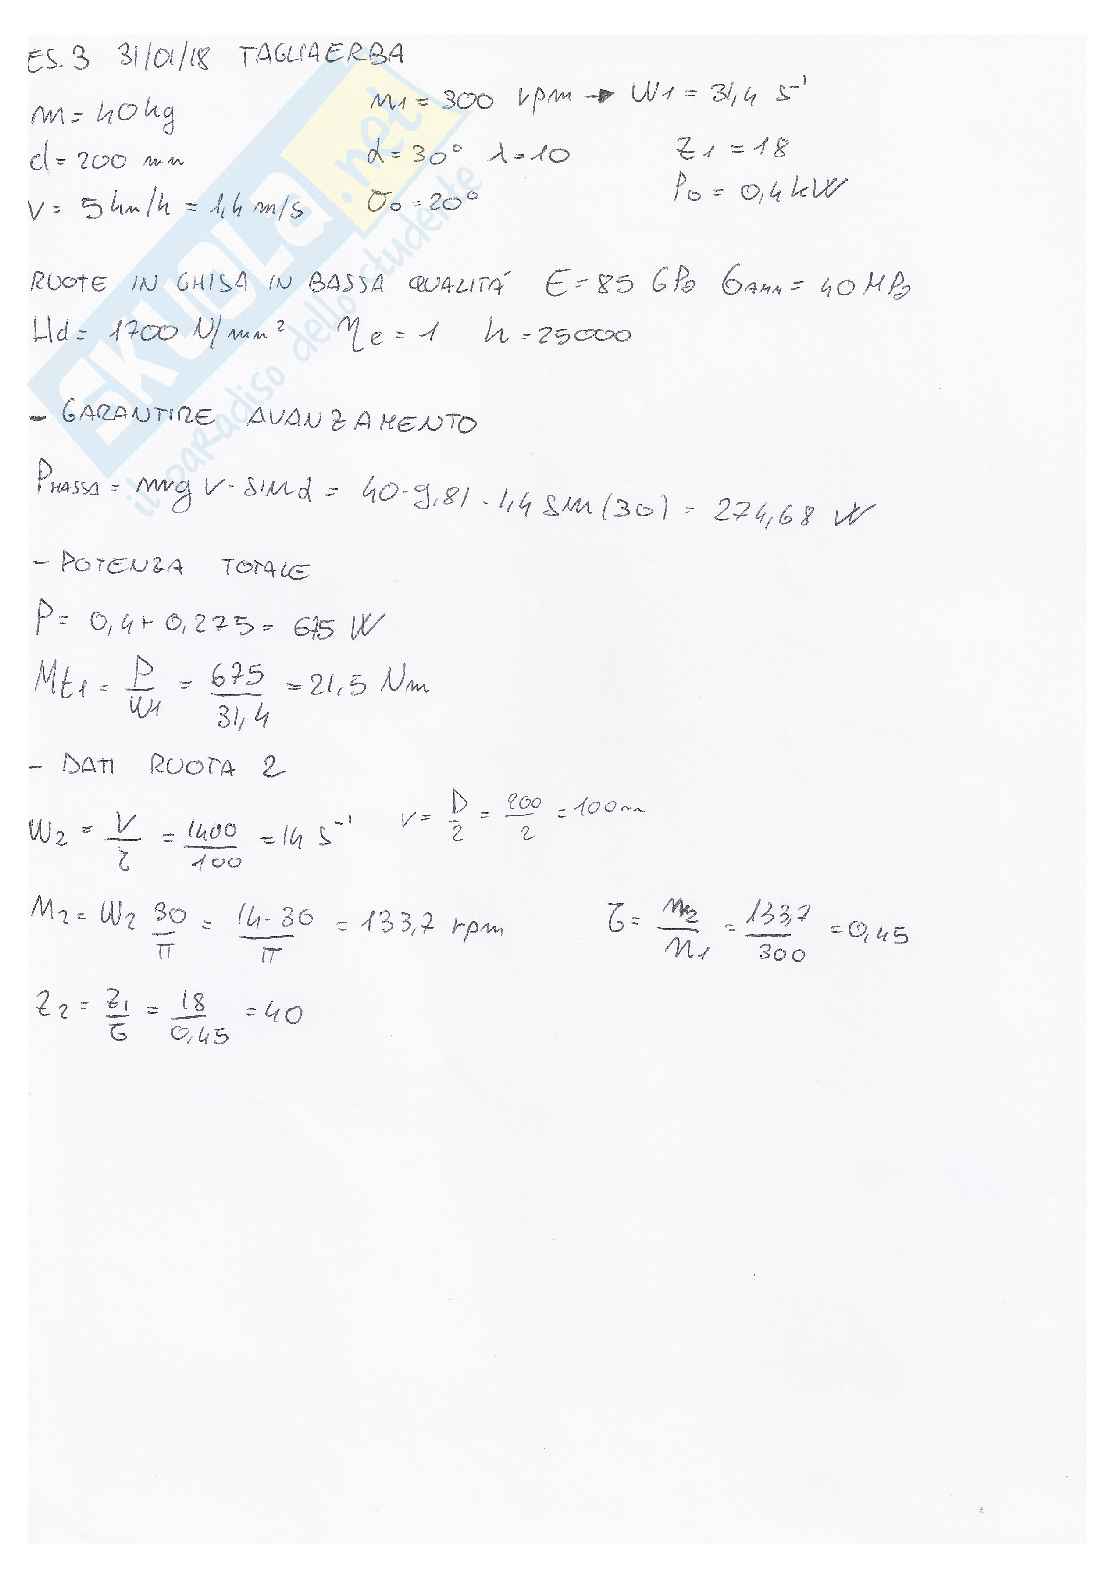 ES.3 31/01/18 TAGLIAERBA
m = 40 kg n1 = 300 rpm → ω1 = 31,4 s⁻¹
d = 200 mm α = 30° λ = 10 Z1 = 18
V = 5 km/h = 1,4 m/s θ0 = 20° P0 = 0,4 kW
RUOTE IN GHISA IN BASSA QUALITÁ E = 85 GPa σAMM = 40 MPa
Hd = 1700 N/mm² ηe = 1 h = 25000
- GARANTIRE AVANZAMENTO
PMASSA = mg V · sin α = 40 · 9,81 · 1,4 sin (30) = 274,68 W
- POTENZA TOTALE
P = 0,4 + 0,275 = 675 W
Mt1 = P/ω1 = 675/31,4 = 21,5 Nm
- DATI RUOTA 2
ω2 = V/r = 1400/100 = 14 s⁻¹ r = D/2 = 200/2 = 100 mm
n2 = ω2 30/π = 14·30/π = 133,7 rpm τ = n2/n1 = 133,7/300 = 0,45
Z2 = Z1/τ = 18/0,45 = 40
SKUOLA.net
il paradiso dello studente